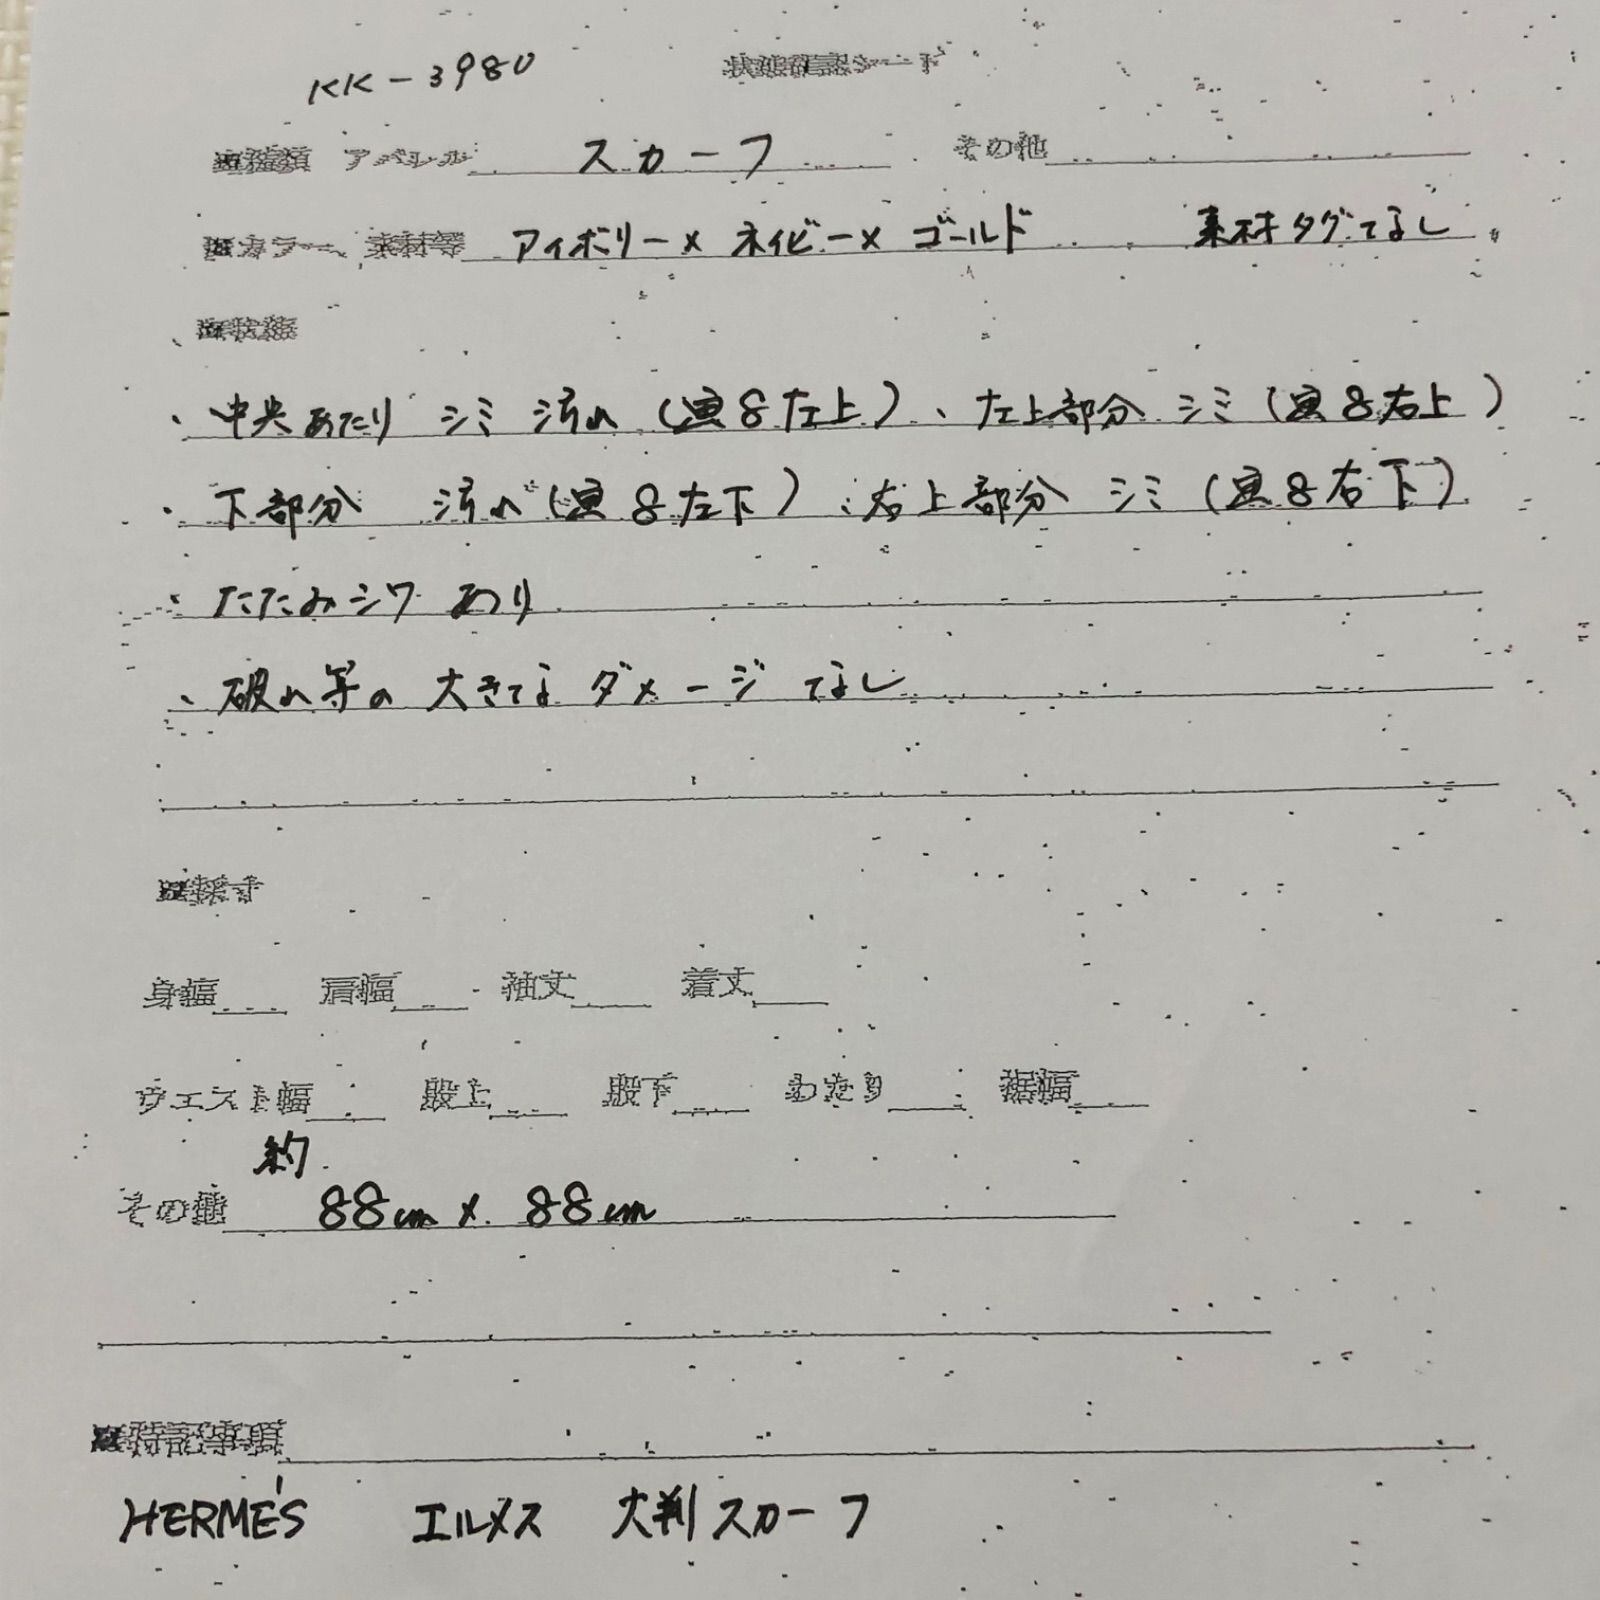 KK-3980 状態確認シート
■種類 アパレル スカーフ その他
■カラー、素材等 アイボリー×ネイビー×ゴールド 素材タグなし
■状態
・中央あたり シミ 汚れ(画8左上)、左上部分 シミ(画8右上)
・下部分 汚れ(画8左下)、右上部分 シミ(画8右下)
・たたみシワあり
・破れ等の大きなダメージなし
■採寸
身幅 肩幅 袖丈 着丈
ウエスト幅 股上 股下 わたり 裾幅
その他 約88cm×88cm
■特記事項
HERMÉS エルメス 大判スカーフ